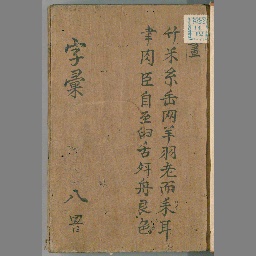 畫
竹米糸缶网羊羽老而耒耳
聿肉臣自至臼舌舛舟艮色
字彙
八